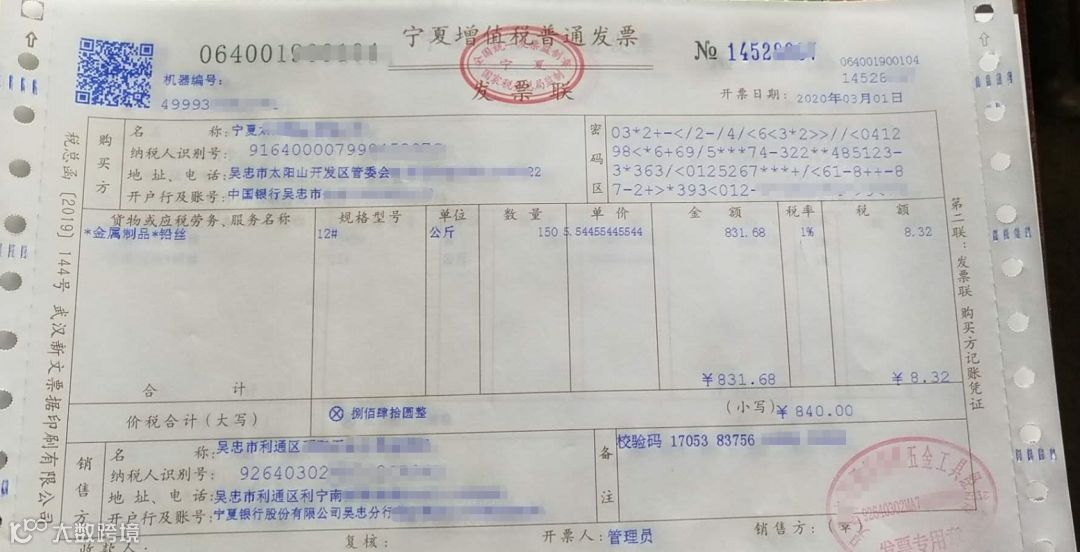 宁夏增值税普通发票
发票联
全国统一发票监制章
宁夏
国家税务总局监制
064001
№ 14528
064001900104
14528
机器编号:
49993
开票日期: 2020年03月01日
税总函〔2019〕144号 武汉新文票据印刷有限公司
购买方
名称: 宁夏
纳税人识别号: 91640000799
地址、电话: 吴忠市太阳山开发区管委会 22
开户行及账号: 中国银行吴忠市
密码区
03*2+-</2-/4/<6<3*2>>//<0412
98<*6+69/5***74-322**485123-
3*363/<0125267***+/<61-8++-8
7-2+>*393<012-
货物或应税劳务、服务名称 规格型号 单位 数量 单价 金额 税率 税额
*金属制品*铅丝 12# 公斤 150 5.54455445544 831.68 1% 8.32
合计 ¥831.68 ¥8.32
价税合计(大写) ⊗ 捌佰肆拾圆整 (小写) ¥840.00
第二联:发票联 购买方记账凭证
销售方
名称: 吴忠市利通区
纳税人识别号: 92640302
地址、电话: 吴忠市利通区利宁南
开户行及账号: 宁夏银行股份有限公司吴忠分行
备注
校验码 17053 83756
五金工具
92640302MA7
发票专用章
收款人: 复核: 开票人: 管理员 销售方:(章)
大数跨境